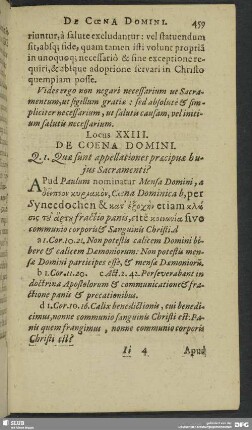 DE COENA DOMINI. 459
riuntur, à salute excludantur: vel statuendum
sit, absq; fide, quam tamen isti volunt propriā
in unoquoq; necessariò & sine exceptione re-
quiri, & absque adoptione servari in Christo
quempiam posse.
Vides ergo non negari necessarium ut Sacra-
mentum, ut sigillum gratiæ: sed absolutè & sim-
pliciter necessarium, ut salutis causam, vel initi-
um salutis necessarium.
Locus XXIII.
DE COENA DOMINI.
Q. 1. Quæ sunt appellationes præcipuæ hu-
jus Sacramenti?
APud Paulum nominatur Mensa Domini, a
δεῖπνον κυριακὸν, Cœna Dominica b, per
Synecdochen & κατ' ἐξοχὴν etiam κλά
σις τȣ͂ ἄρτȣ fractio panis, c itē κοινωνία sive
communio corporis & Sanguinis Christi. d
a 1. Cor. 10. 21. Non potestis calicem Domini bi-
bere & calicem Dæmoniorum: Non potestis men-
sæ Domini participes esse, & mensæ Dæmoniorū.
b 1. Cor. 11. 20. c Act. 2. 42. Perseverabant in
doctrina Apostolorum & communicatione & fra-
ctione panis & precationibus.
d 1. Cor. 10. 16. Calix benedictionis, cui benedi-
cimus, nonne communio sanguinis Christi est: Pa-
nis quem frangimus, nonne communio corporis
Christi est?
Ii 4 Apud